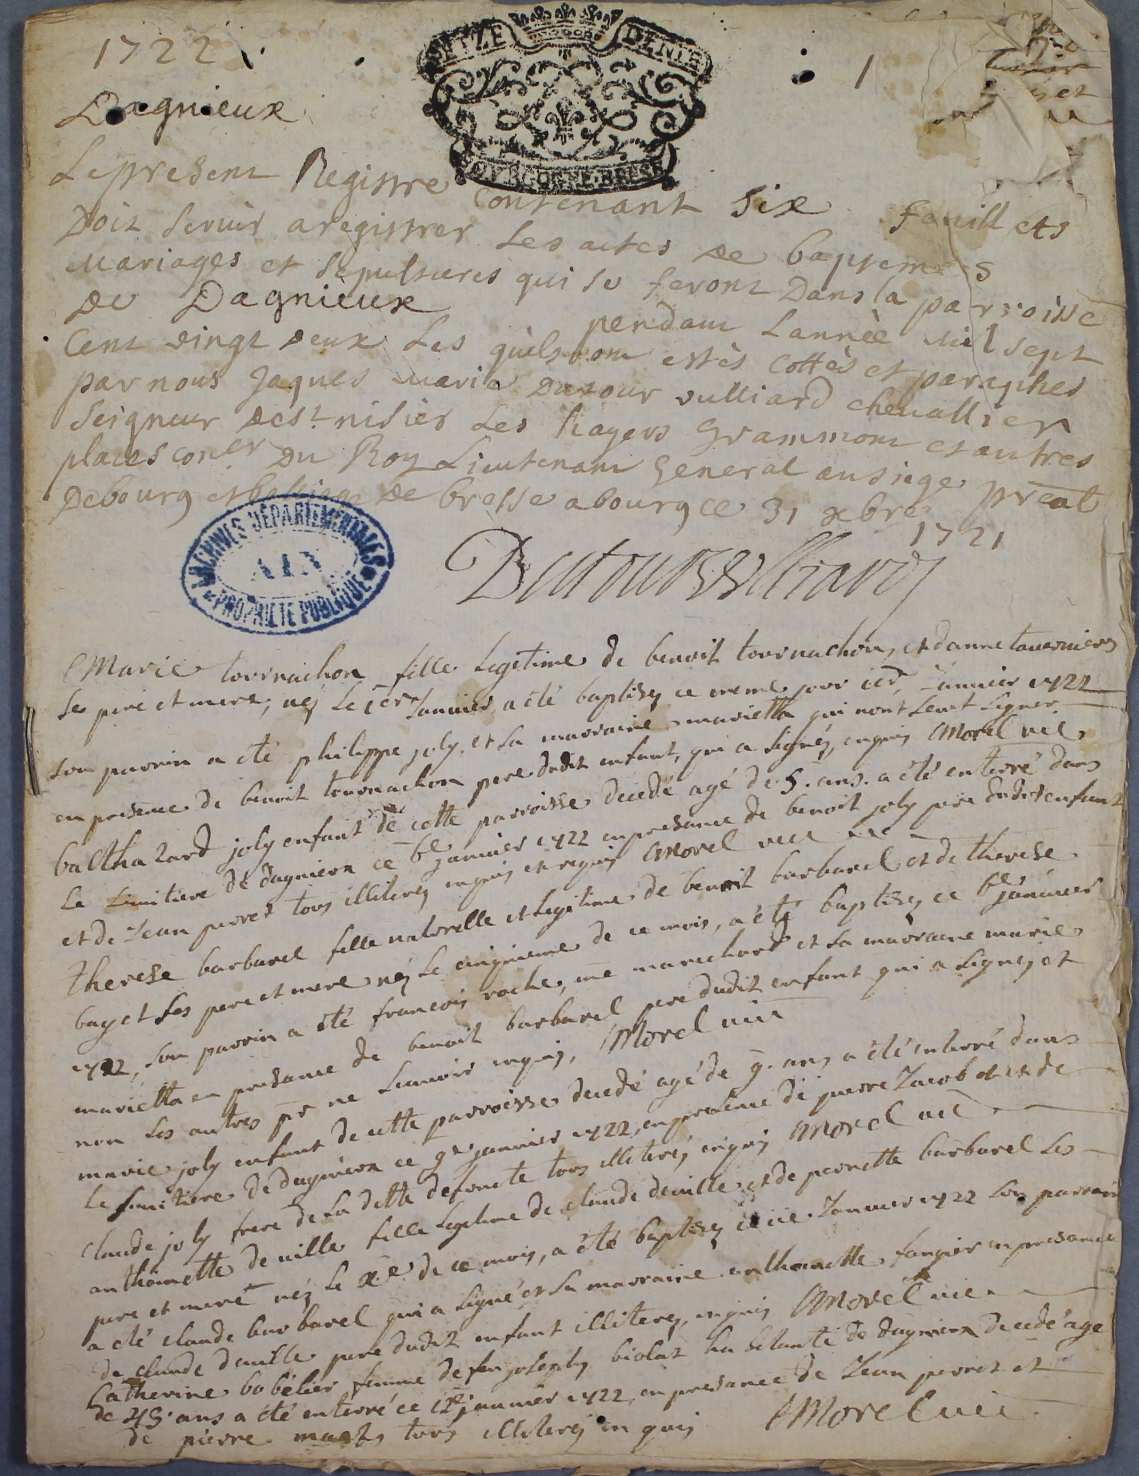 1722
1
SEIZE DENIE
BOURGOGNE BRESSE
Dagnieux
Le present Registre Contenant Six feuillets
Doit servir a registrer les actes de baptemes
Mariages et sepultures qui se feront Dans la parroisse
de Dagnieux pendant Lannèe Mil sept
Cent vingt deux Les quels ont estès cottès et paraphes
par nous Jaques Marie Dutour vulliard chevallier
Seigneur de St. nisiër Les hayers Grammont et autres
places coner Du Roy Lieutenant General au siege preal
De bourg et de bresse a bourg ce 31 xbre
1721
Dutour vulliard
ARCHIVES DÉPARTEMENTALES
AIN
PROPRIÉTÉ PUBLIQUE
Marie tournachon fille legitime de benoit tournachon, et danne tavernier
Ses pere et mere, néz Le 1er. Janvier a été baptisez ce meme jour 1er. Janvier 1722
son parrin a été philippe joly, et sa marraine marietta qui nont sceut signer
en presence de benoit tournachon pere dudit enfant, qui a signéz, enquis Morel vic.
balthazard joly enfant de cette parroisse decedé agé de 5. ans. a été enterré dans
Le Simitiere de dagnieux ce 6e janvier 1722 en presance de benoit joly pere dudit enfant
et de Jean perret tous illiterez enquis et requis Morel vic
Therese barbarel fille naturelle et legitime de benoit barbarel et de therese
bayet Ses pere et mere néz Le cinquieme de ce mois, a été baptisez ce 6e janvier
1722, son parrin a été francois roche, me marechard et sa marraine marie
marietta en presance de benoit barbarel pere dudit enfant qui a signéz et
non Les autres pr ne Scavoir enquis, Morel vic
marie joly enfant de cette parroisse decedé agé de 9. ans a été enterré dans
Le Simitiere de dagnieux ce 9e janvier 1722, en presence de pierre Jacob et de
Claude joly frere de La ditte defuncte tous illiterez enquis Morel vic
anthoinette deville fille legitime de claude deville et de pernette barbarel Ses
pere et mere néz le xe. de ce mois, a été baptisez Janvier 1722 Son parrain
a été claude barbarel qui a signé et sa marraine anthoinette fangier en presance
de claude deville pere dudit enfant illiterez enquis Morel vic
Catherine bobélier femme de feu joseph biolat habitante de dagnieux decedé age
de 45. ans a été enterré ce 12e janvier 1722, en presance de Jean perret et
de pierre tous illiterez enquis Morel vic